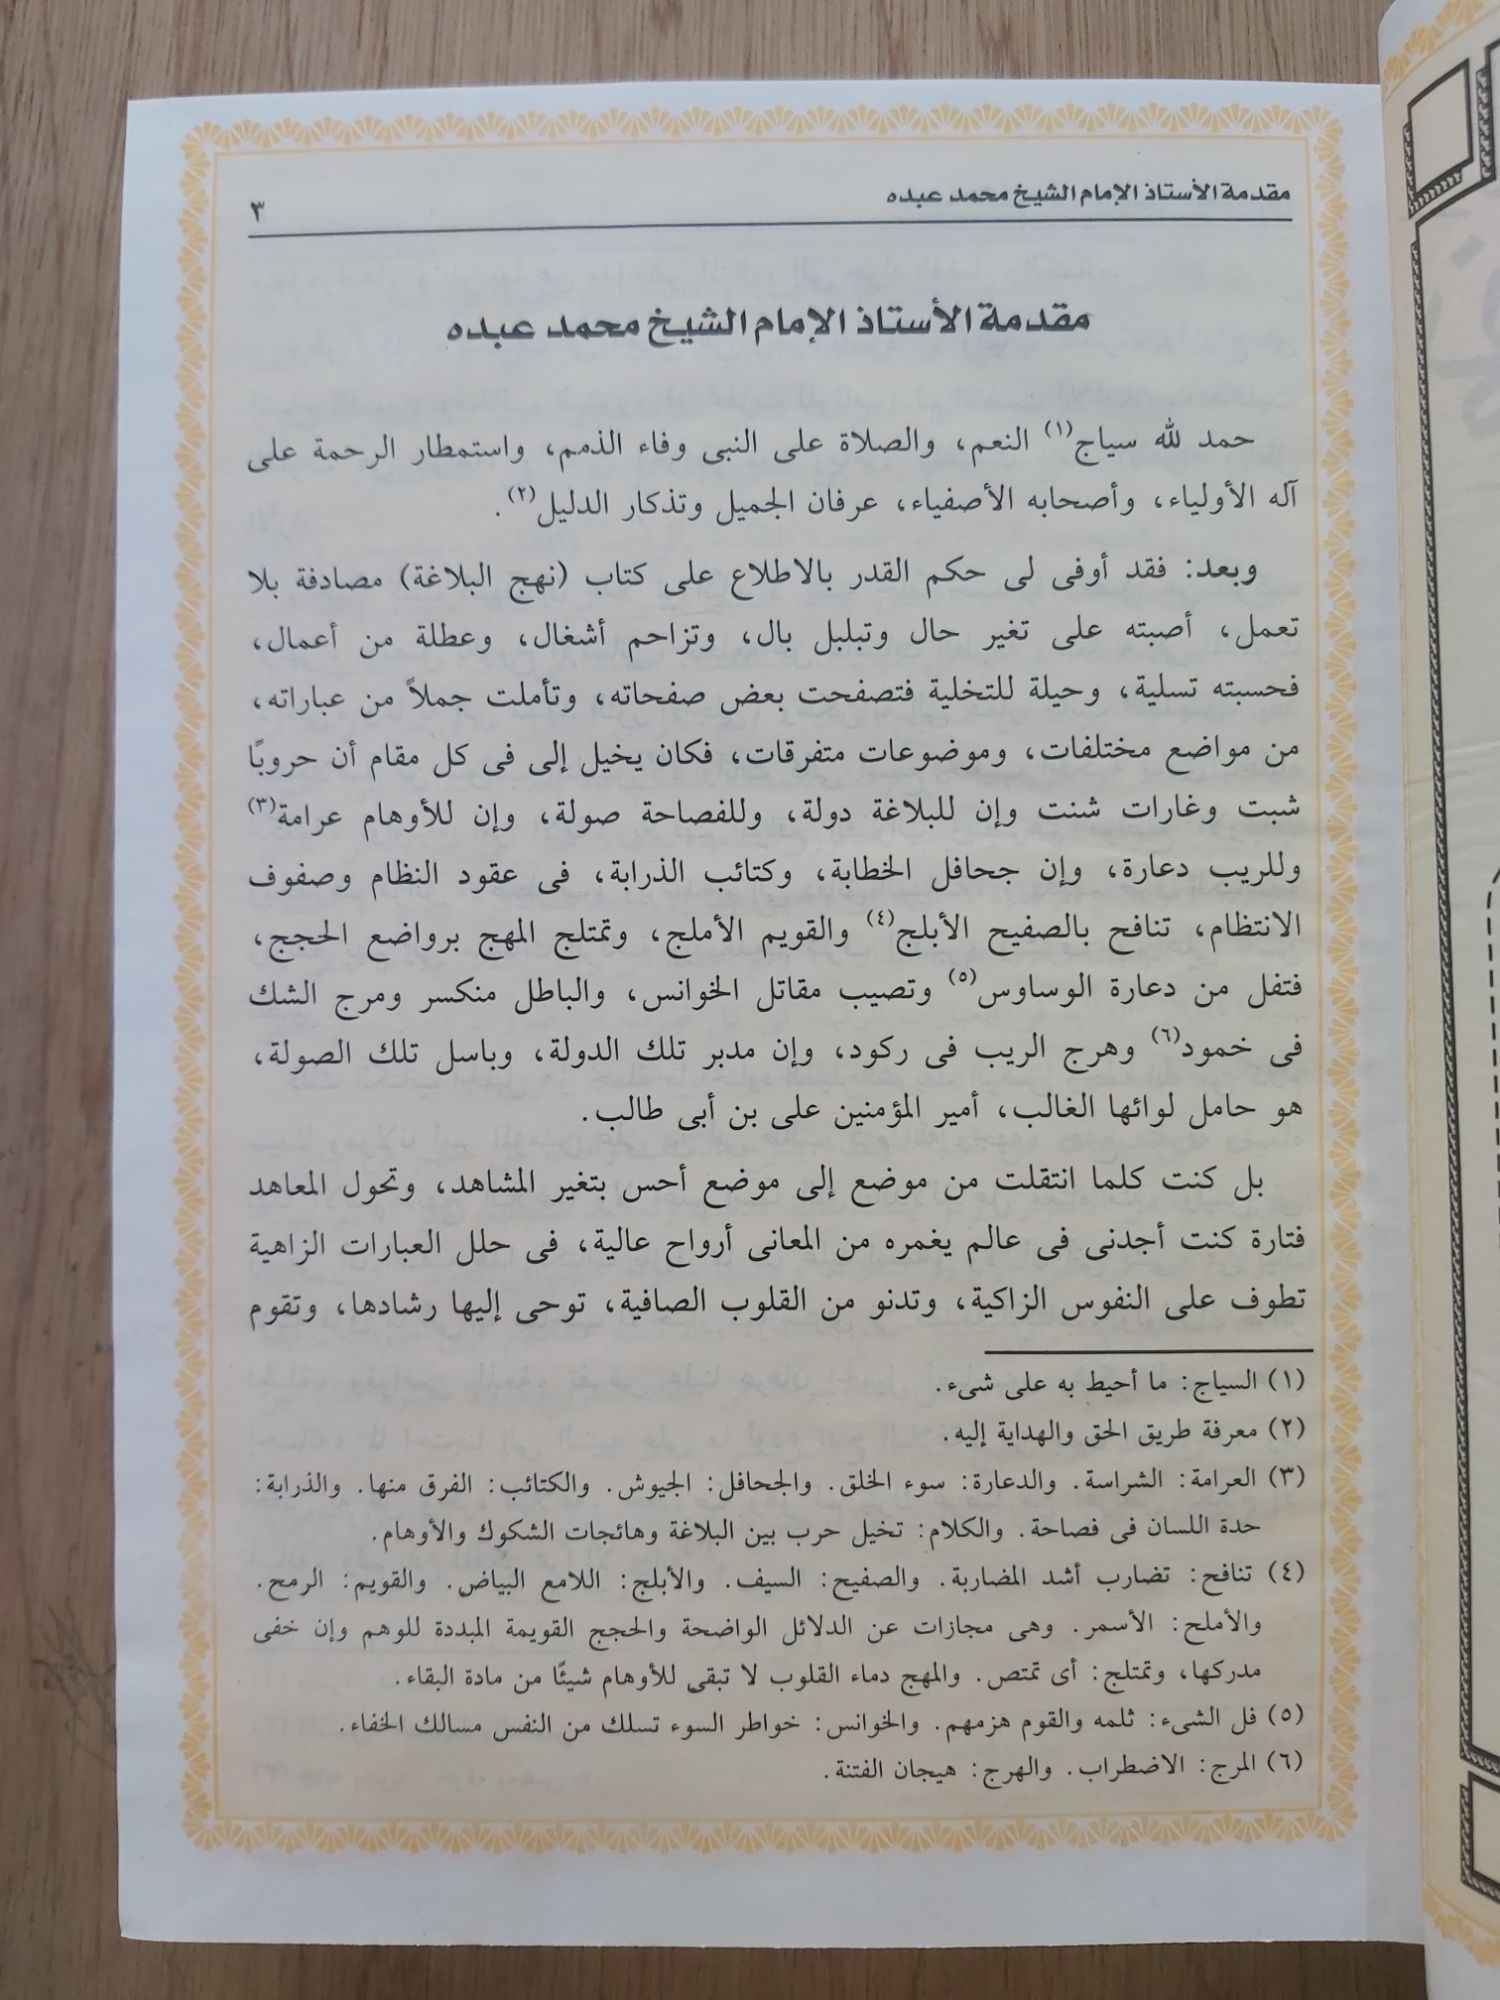 مقدمة الأستاذ الإمام الشيخ محمد عبده
٣
مقدمة الأستاذ الإمام الشيخ محمد عبده
حمد لله سياج(١) النعم، والصلاة على النبى وفاء الذمم، واستمطار الرحمة على
آله الأولياء، وأصحابه الأصفياء، عرفان الجميل وتذكار الدليل(٢).
وبعد: فقد أوفى لى حكم القدر بالاطلاع على كتاب (نهج البلاغة) مصادفة بلا
تعمل، أصبته على تغير حال وتبلبل بال، وتزاحم أشغال، وعطلة من أعمال،
فحسبته تسلية، وحيلة للتخلية فتصفحت بعض صفحاته، وتأملت جملاً من عباراته،
من مواضع مختلفات، وموضوعات متفرقات، فكان يخيل إلى فى كل مقام أن حروبًا
شبت وغارات شنت وإن للبلاغة دولة، وللفصاحة صولة، وإن للأوهام عرامة(٣)
وللريب دعارة، وإن جحافل الخطابة، وكتائب الذرابة، فى عقود النظام وصفوف
الانتظام، تنافح بالصفيح الأبلج(٤) والقويم الأملج، وتمتلج المهج برواضع الحجج،
فتفل من دعارة الوساوس(٥) وتصيب مقاتل الخوانس، والباطل منكسر ومرج الشك
فى خمود(٦) وهرج الريب فى ركود، وإن مدبر تلك الدولة، وباسل تلك الصولة،
هو حامل لوائها الغالب، أمير المؤمنين على بن أبى طالب.
بل كنت كلما انتقلت من موضع إلى موضع أحس بتغير المشاهد، وتحول المعاهد
فتارة كنت أجدنى فى عالم يغمره من المعانى أرواح عالية، فى حلل العبارات الزاهية
تطوف على النفوس الزاكية، وتدنو من القلوب الصافية، توحى إليها رشادها، وتقوم
(١) السياج: ما أحيط به على شىء.
(٢) معرفة طريق الحق والهداية إليه.
(٣) العرامة: الشراسة. والدعارة: سوء الخلق. والجحافل: الجيوش. والكتائب: الفرق منها. والذرابة:
حدة اللسان فى فصاحة. والكلام: تخيل حرب بين البلاغة وهائجات الشكوك والأوهام.
(٤) تنافح: تضارب أشد المضاربة. والصفيح: السيف. والأبلج: اللامع البياض. والقويم: الرمح.
والأملح: الأسمر. وهى مجازات عن الدلائل الواضحة والحجج القويمة المبددة للوهم وإن خفى
مدركها، وتمتلج: أى تمتص. والمهج دماء القلوب لا تبقى للأوهام شيئًا من مادة البقاء.
(٥) فل الشىء: ثلمه والقوم هزمهم. والخوانس: خواطر السوء تسلك من النفس مسالك الخفاء.
(٦) المرج: الاضطراب. والهرج: هيجان الفتنة.